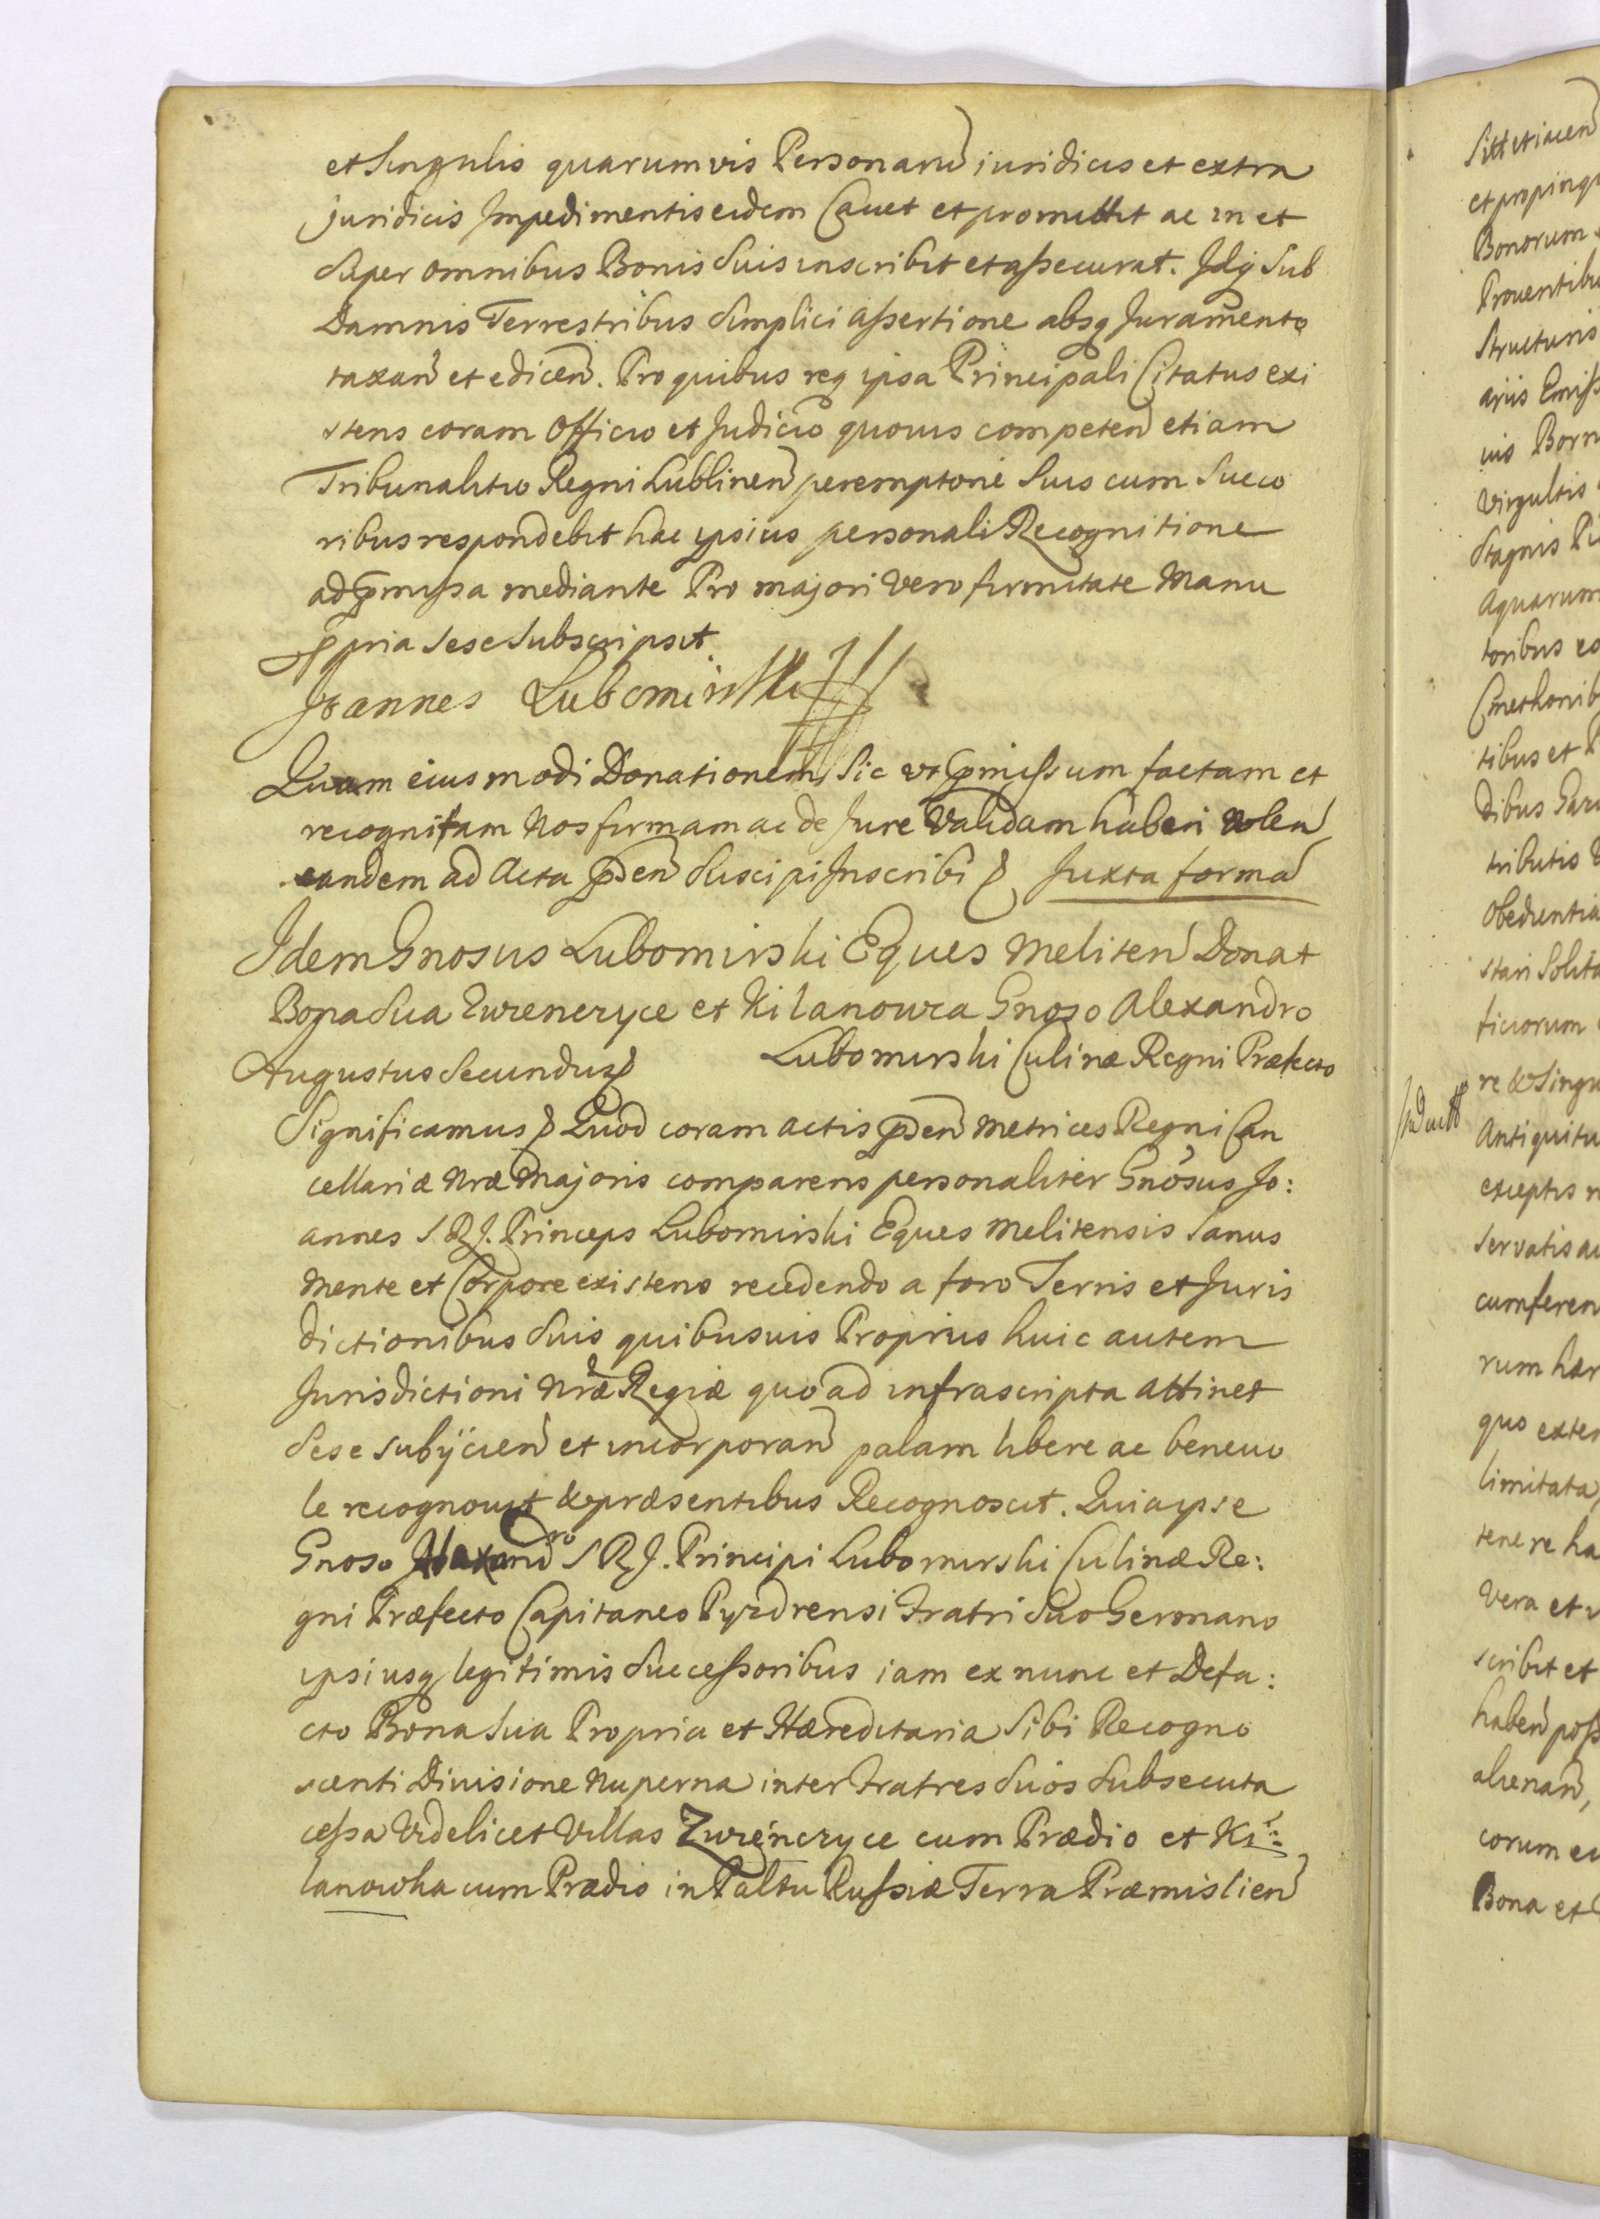 et Singulis quarumvis Personarũ iuridicis et extra
juridicis Impedimentis eidem Cauet et promittit ac in et
Super omnibus Bonis Suis inscribit et assecurat. Idq̃ Sub
Damnis Terrestribus Simplici assertione absq̃ Juramento
taxañ et ediceñ. Pro quibus req̃ ipsa Principali Citatus exi
stens coram Officio et Judicio quouis competeñ etiam
Tribunalitio Regni Lublineñ peremptorie Suis cum Succo
ribus respondebit hac ipsius personali Recognitione
ad p̃missa mediante Pro majori Vero firmitate Manu
p̃pria Sese Subscripsit.
Joannes Lubomirski
Quam eiusmodi Donationem Sic vt p̃missum factam et
recognitam Nos firmam ac de Jure Validam haberi Voleñ
eandem ad Acta p̃deñ Suscipi Inscribi Juxta formã
Idem Gnosus Lubomirski Eques Meliteñ Donat
Bona Sua Zwreneryce et Kilanowca Gnoso Alexandro
Lubomirski Culinæ Regni Præfecto
Augustus Secundus
Significamus Quod coram actis p̃deñ Metrices Regni Can
cellariæ Nrae Majoris comparens personaliter Gnosus Jo:
annes S.R.J. Princeps Lubomirski Eques Melitensis Sanus
Mente et Corpore existens recedendo a foro Terris et Juris
dictionibus Suis quibusuis Proprius huic autem
Jurisdictioni Nræ Regiæ quo ad infrascripta attinet
Sese subijcieñ et incorporañ palam libere ac beneuo
le recognouit & præsentibus Recognoscit. Quia ipse
Gnoso Alexandro S R J. Principi Lubomirski Culinæ Re:
gni Præfecto Capitaneo Pyzdrensi Fratri Suo Germano
ipsiusq̃ legitimis Successoribus iam ex nunc et Defa:
cto Bona Sua Propria et Hæreditaria Sibi Recogno
scenti Diuisione Nuperna inter Fratres Suos Subsecuta
cessa Videlicet Villas Zwrenczyce cum Prædio et Ki:
lanowka cum Prædio in Paltu Russiæ Terra Præmislieñ
Sitt et iacen
et propinq
Bonorum
Prouentibu
Structuris
ariis Emiss
uis Born
Virgultis
Stagnis Pi
Aquarum
toribus
Cmethonib
tibus et
dibus
tributis
Obedientia
stari Solita
ficiorum
re & Singu
Antiquitu
exceptis
Servatis au
cumferen
rum hær
quo exten
limitata,
tenere ha
Vera et
scribit et
habeñ poss
alienañ,
corum
Bona et